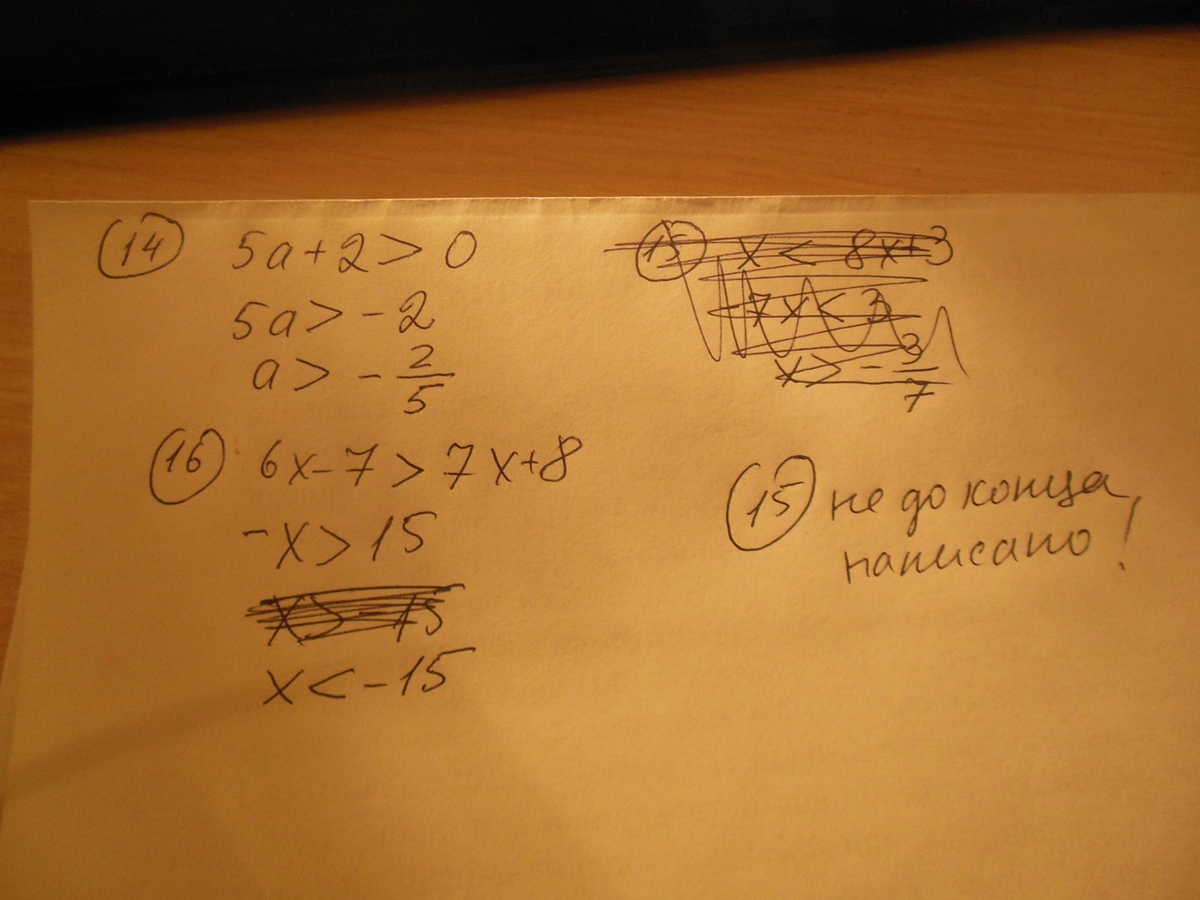 14 5a+2 > 0
5a > -2
a > - 2/5
15 x < 8x+3
-7x < 3
x > - 3/7
16 6x-7 > 7x+8
-x > 15
x > -15
x < -15
15 не до конца
написано!